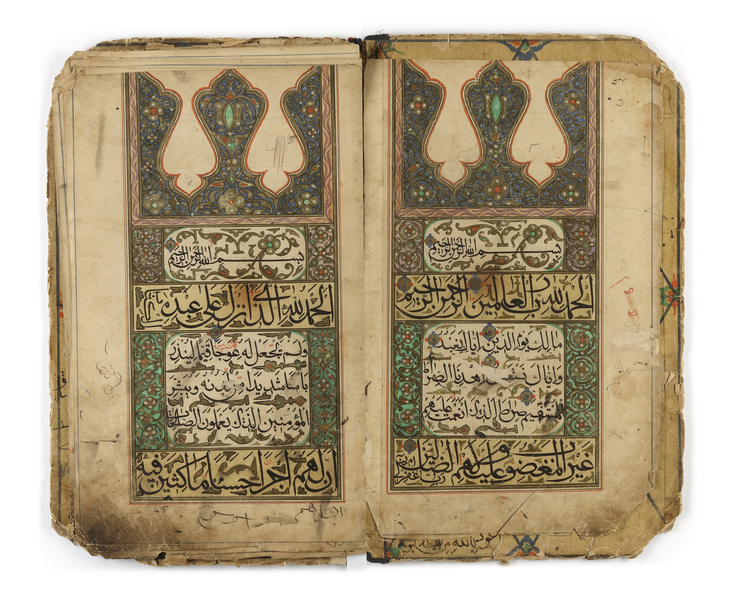 بسم الله الرحمن الرحيم
الحمد لله رب العالمين الرحمن الرحيم
مالك يوم الدين اياك نعبد
واياك نستعين اهدنا الصرا
المستقيم صراط الذين انعمت عليهم
غير المغضوب عليهم ولا الضالين
بسم الله الرحمن الرحيم
الحمد لله الذي انزل على عبده
ولم يجعل له عوجا قيما لينذر
باسا شديدا من لدنه ويبشر
المؤمنين الذين يعملون الصالحات
ان لهم اجرا حسنا ماكثين فيه